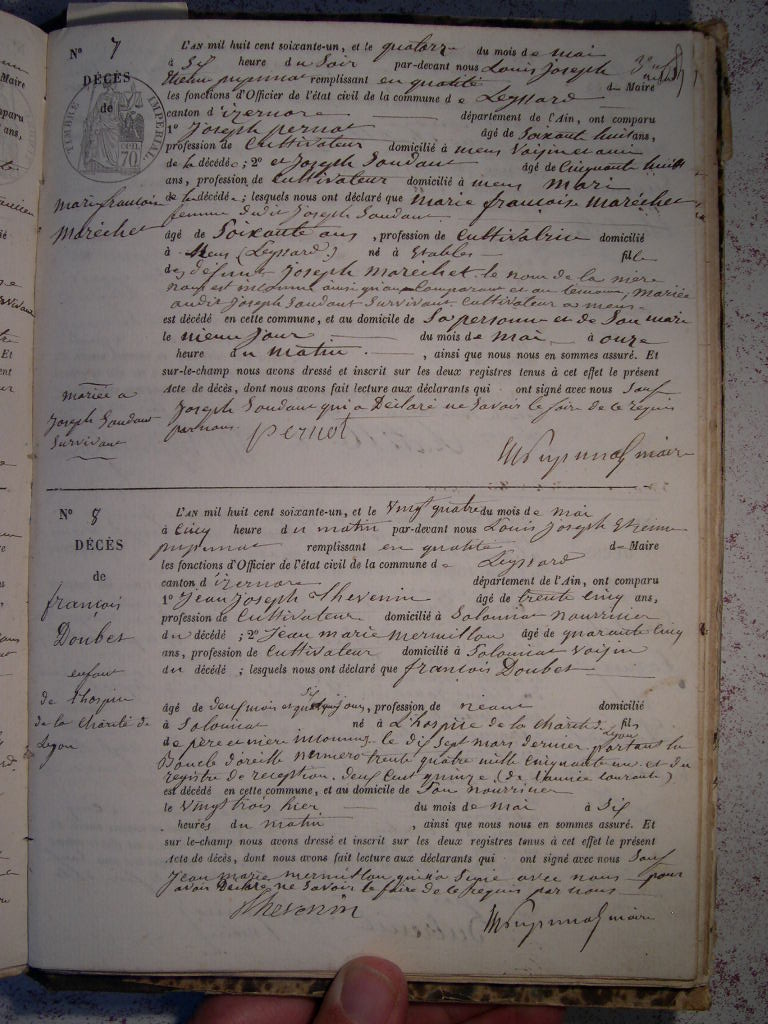 N° 7
DÉCÈS
de
TIMBRE IMPERIAL
70
marie françoise
maréchet
mariée a
Joseph Goudant
Survivant
L'AN mil huit cent soixante-un, et le quatorze du mois de mai
à Six heure du Soir par-devant nous Louis Joseph
Etienne puynnat remplissant en qualité de Maire
les fonctions d'Officier de l'état civil de la commune de Leyssard
canton d'izernore département de l'Ain, ont comparu
1° Joseph pernot âgé de Soixante huit ans,
profession de Cultivateur domicilié à mens Voisin et ami
de la décédée; 2° et Joseph Goudant âgé de Cinquante huit
ans, profession de Cultivateur domicilié à mens Mari
de la décédée; lesquels nous ont déclaré que Marie françoise Maréchet
femme dudit Joseph Goudant
âgé de Soixante ans, profession de Cultivatrice domicilié
à Mens (Leyssard) né à Etables fille
des défunt Joseph Marechet le nom de la mère
nous est inconnu ainsi qu'au Comparant et au témoin, mariée
audit Joseph Goudant Survivant Cultivateur a mens
est décédé en cette commune, et au domicile de Sa personne et de Son mari
le même jour du mois de Mai à onze
heure du Matin, ainsi que nous nous en sommes assuré. Et
sur-le-champ nous avons dressé et inscrit sur les deux registres tenus à cet effet le présent
Acte de décès, dont nous avons fait lecture aux déclarants qui ont signé avec nous Sauf
Joseph Goudant qui a Déclaré ne Savoir le faire de ce requis
par nous. pernot
puynnat maire
N° 8
DÉCÈS
de
françois
Doubet
enfant
de l'hospice
de la Charité de
Lyon
L'AN mil huit cent soixante-un, et le Vingt quatre du mois de mai
à Cinq heure du matin par-devant nous Louis Joseph Etienne
puynnat remplissant en qualité de Maire
les fonctions d'Officier de l'état civil de la commune de Leyssard
canton d'izernore département de l'Ain, ont comparu
1° Jean Joseph thevenin âgé de trente Cinq ans,
profession de Cultivateur domicilié à Solomiat nourricier
du décédé; 2° Jean marie Mermillon âgé de quarante Cinq
ans, profession de Cultivateur domicilié à Solomiat Voisin
du décédé; lesquels nous ont déclaré que françois Doubet
âgé de deux mois et six jours, profession de néant domicilié
à Solomiat né à L'hospice de la Charité de Lyon fils
de père et mère inconnus le dix Sept mars dernier, portant la
Boucle d'oreille numero trente quatre mille cinquante un et du
registre de reception deux Cent quinze (de l'année courante)
est décédé en cette commune, et au domicile de Son nourricier
le Vingt trois hier du mois de Mai à Six
heures du matin, ainsi que nous nous en sommes assuré. Et
sur le-champ nous avons dressé et inscrit sur les deux registres tenus à cet effet le présent
Acte de décès, dont nous avons fait lecture aux déclarants qui ont signé avec nous Sauf
Jean Marie Mermillon qui n'a Signé avec nous pour
avoir Déclaré ne Savoir le faire de ce requis par nous
Thevenin
puynnat maire